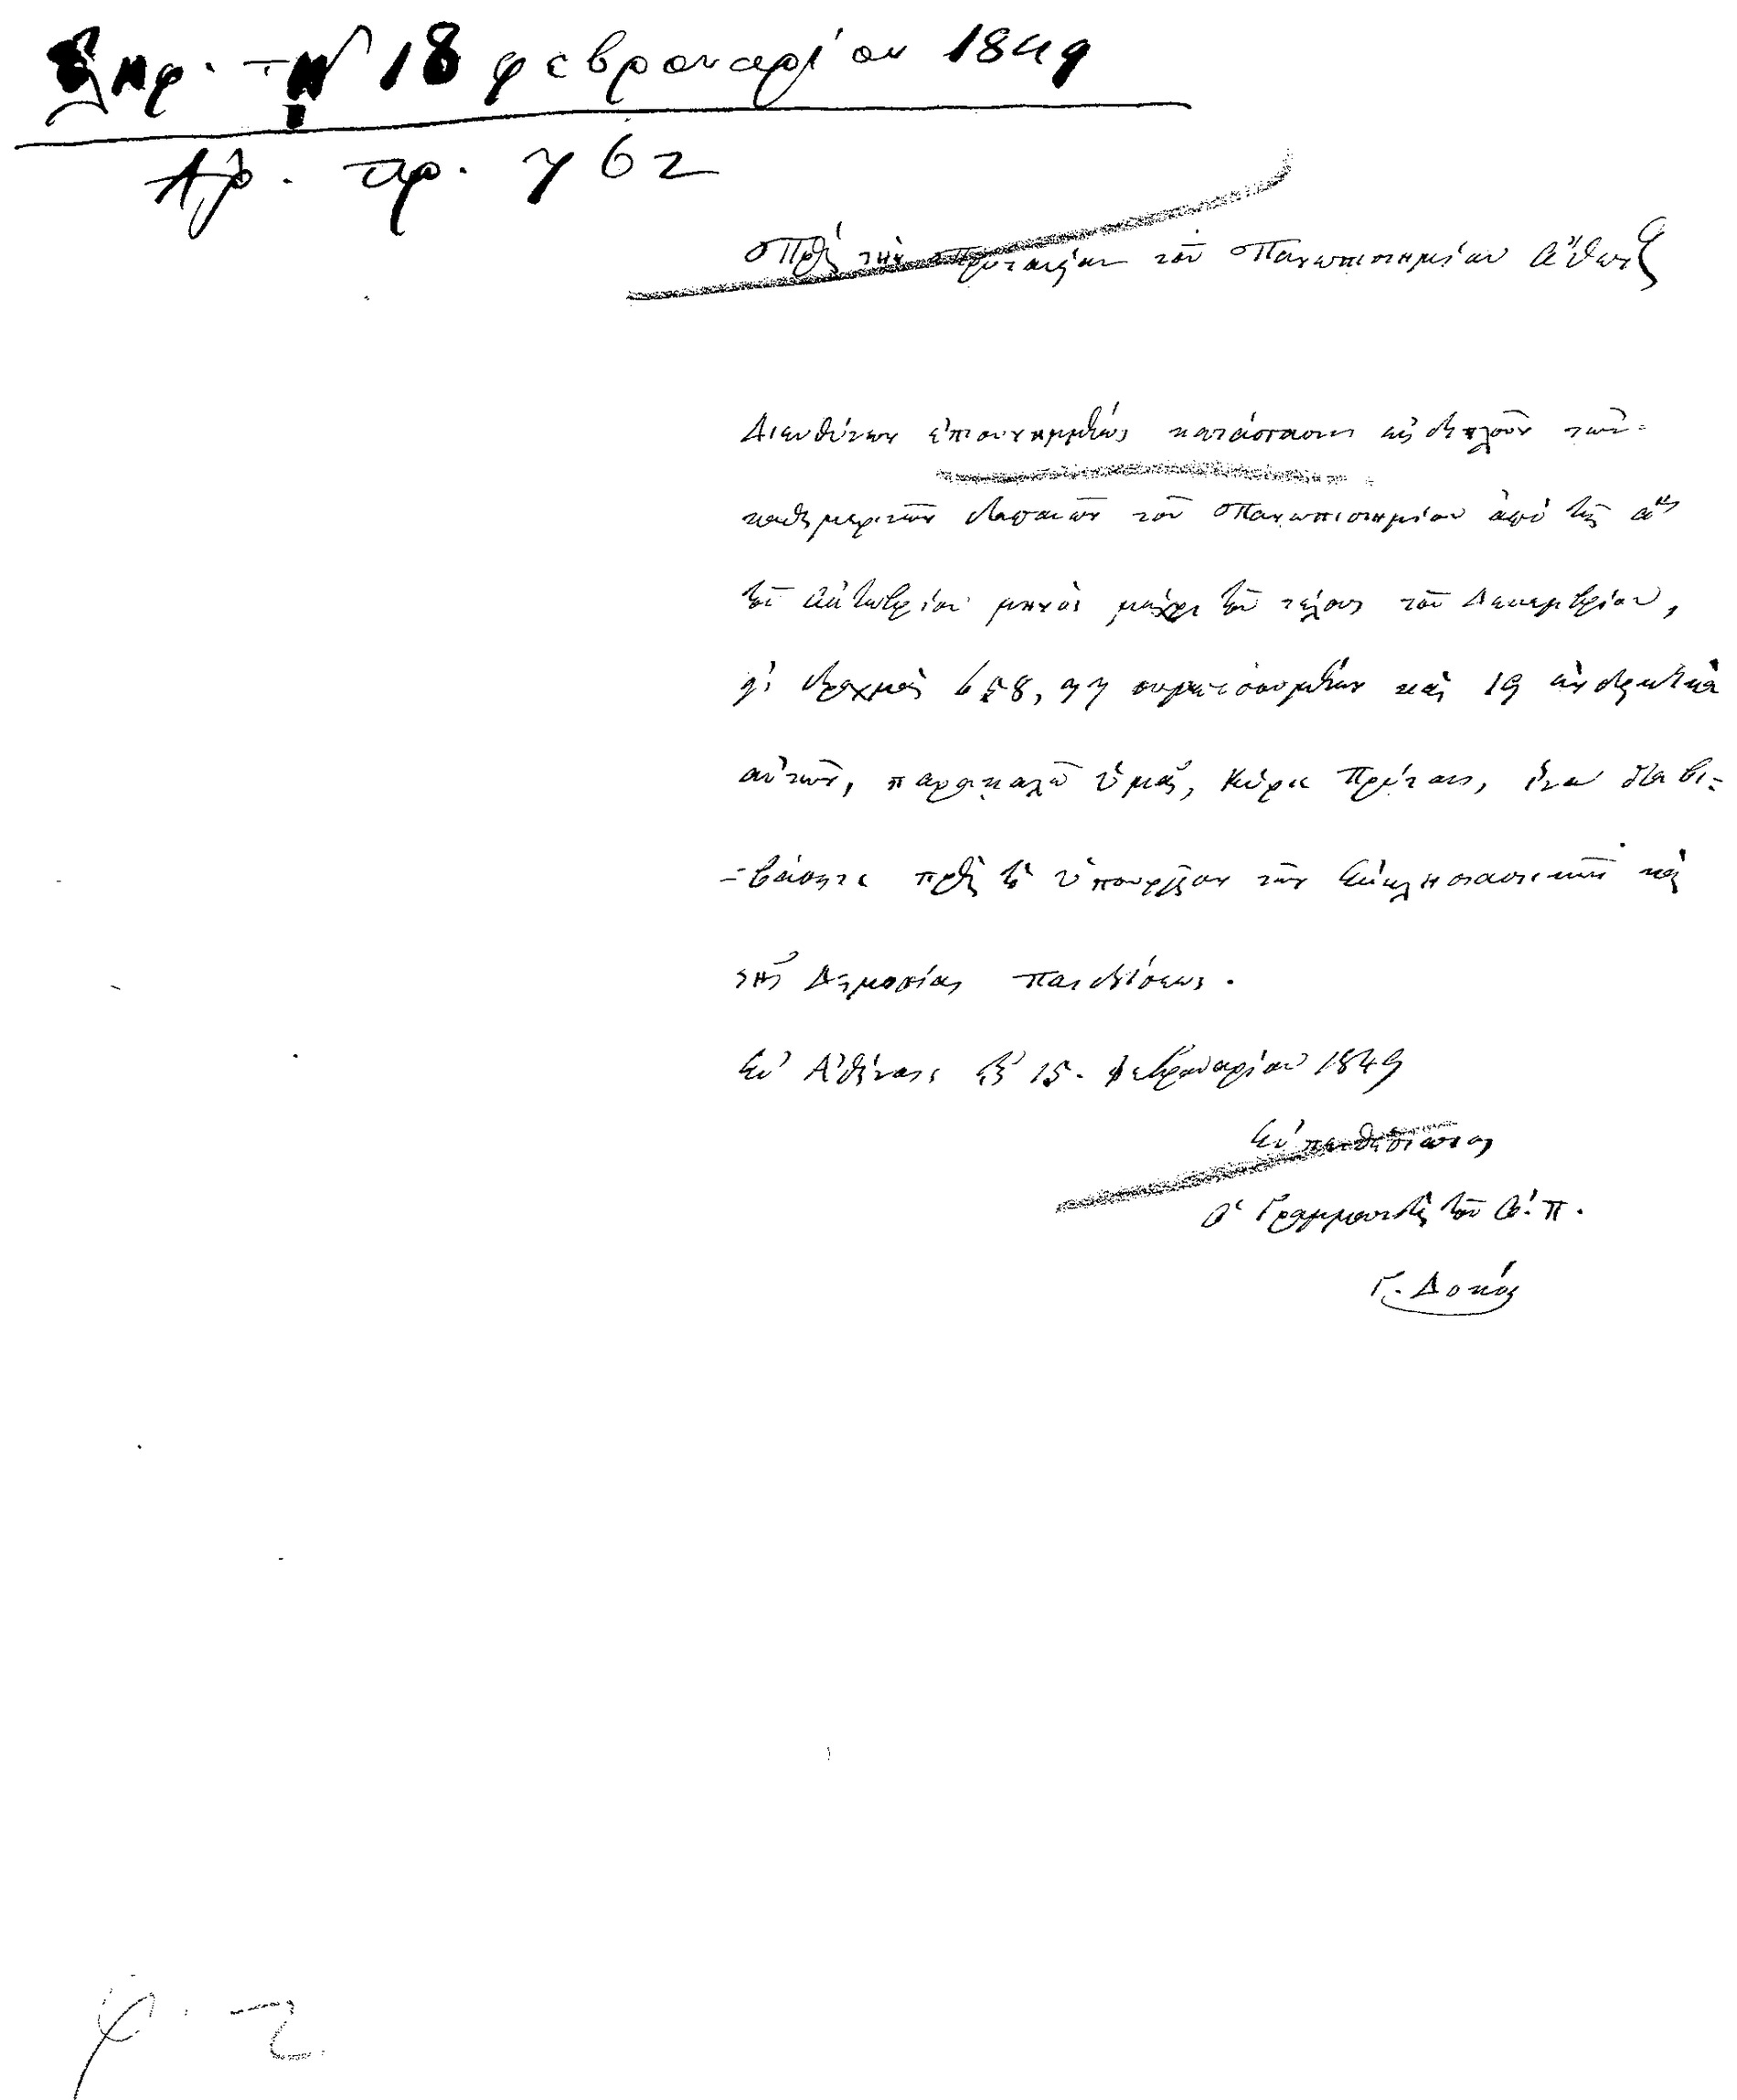 τὴν 18 φεβρουαρίου 1849
Ἀρ. πρ. 762
Πρὸς τὴν Πρυτανείαν τοῦ Πανεπιστημίου Ὄθωνος
Διευθύνων ἐπισυνημμένως κατάστασιν εἰς διπλοῦν τῶν
καθημερινῶν δαπανῶν τοῦ Πανεπιστημίου ἀπὸ τῆς αης
τοῦ Ὀκτωβρίου μηνὸς μέχρι τοῦ τέλους τοῦ Δεκεμβρίου,
δραχμὰς 658, 77 καὶ 19 ἀποδεικτικὰ
αὐτῶν, παρακαλῶ ὑμᾶς, Κύριε Πρύτανι, ἵνα διαβι-
-βάσητε πρὸς τὸ ὑπουργεῖον τῶν Ἐκκλησιαστικῶν καὶ
τῆς Δημοσίας παιδεύσεως.
Ἐν Ἀθήναις τῇ 15. Φεβρουαρίου 1849
Εὐπειθέστατος
ὁ Γραμματεὺς τοῦ Ὀ. Π.
Γ. Δοκός